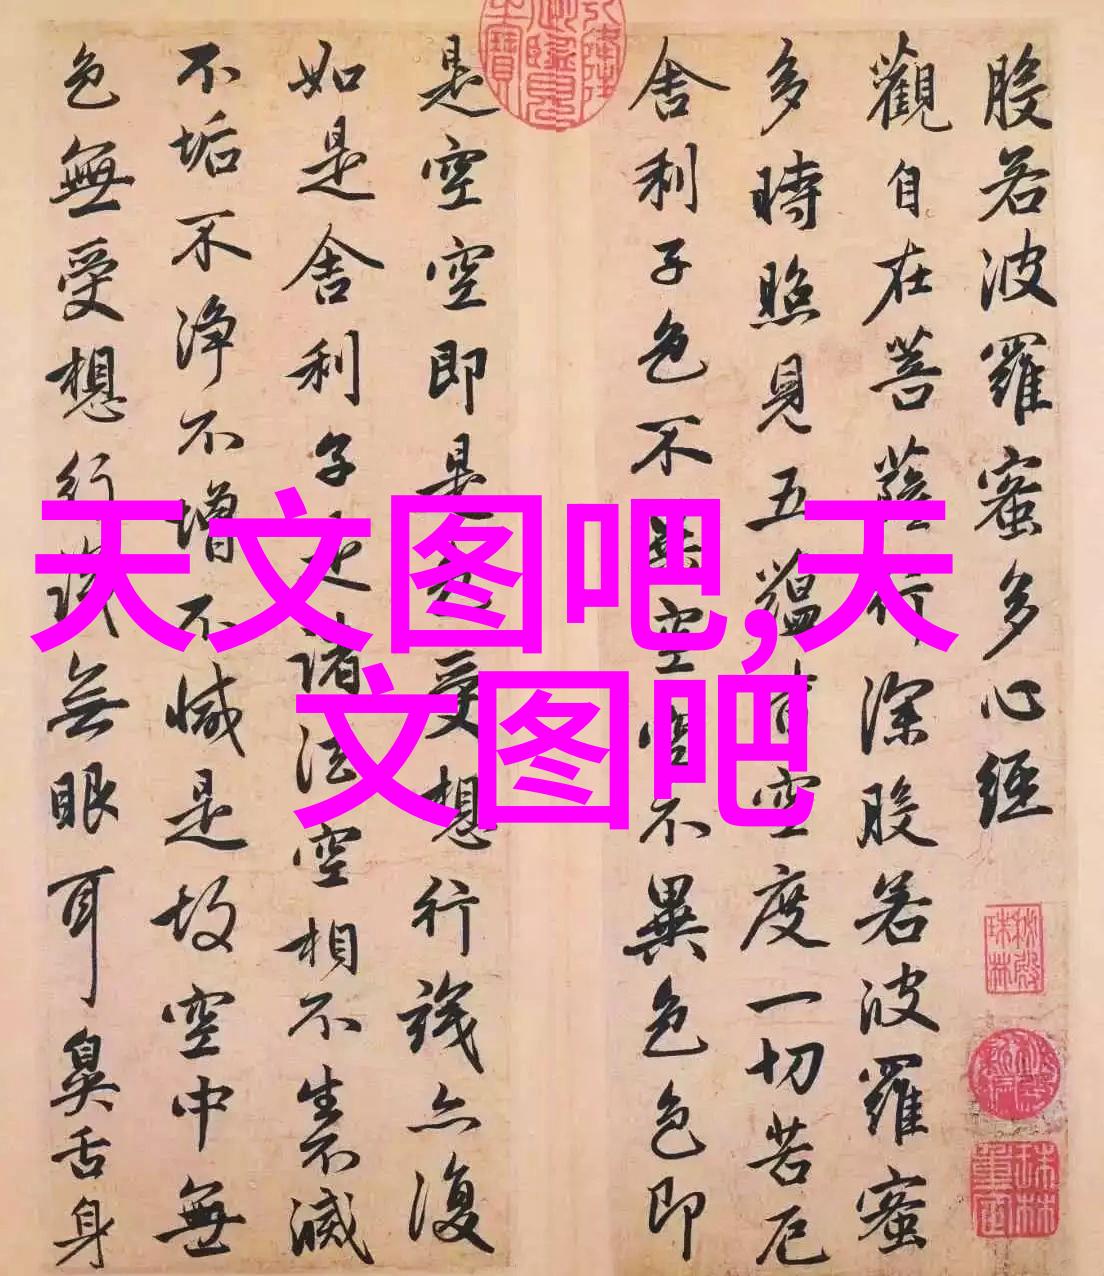 般若波羅蜜多心經
觀自在菩薩行深般若波羅蜜
多時照見五蘊皆空度一切苦厄
舍利子色不異空空不異色色即
是空空即是色受想行識亦復
如是舍利子是諸法空相不生不滅
不垢不淨不增不減是故空中無
色無受想行識無眼耳鼻舌身
天文图吧,天
文图吧
秘殿珠林